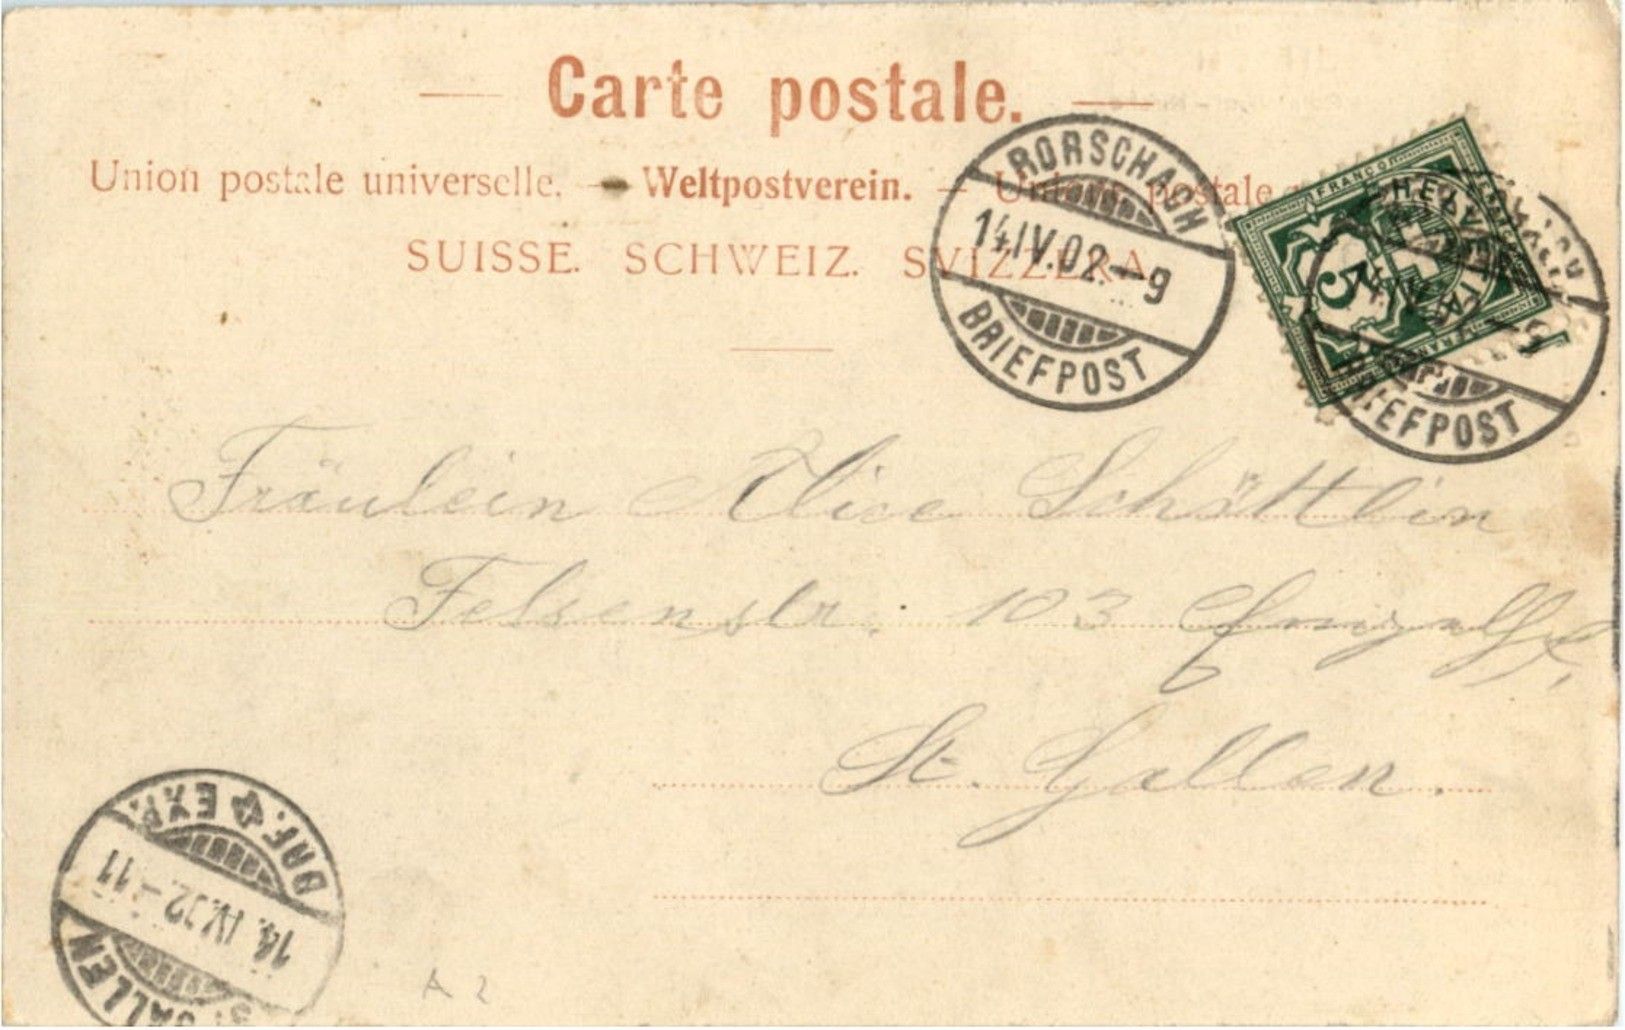 Carte postale.
Union postale universelle. — Weltpostverein. — Unione postale
SUISSE. SCHWEIZ. SVIZZERA.
RORSCHACH
14.IV.02.–9
BRIEFPOST
FRANCO
HELVETIA
5
FRANCO
BRIEFPOST
Fräulein Alice Schättlin
Felsenstr. 103
St. Gallen.
ST. GALLEN
14.IV.02.–11
BRF. EXP.
A2